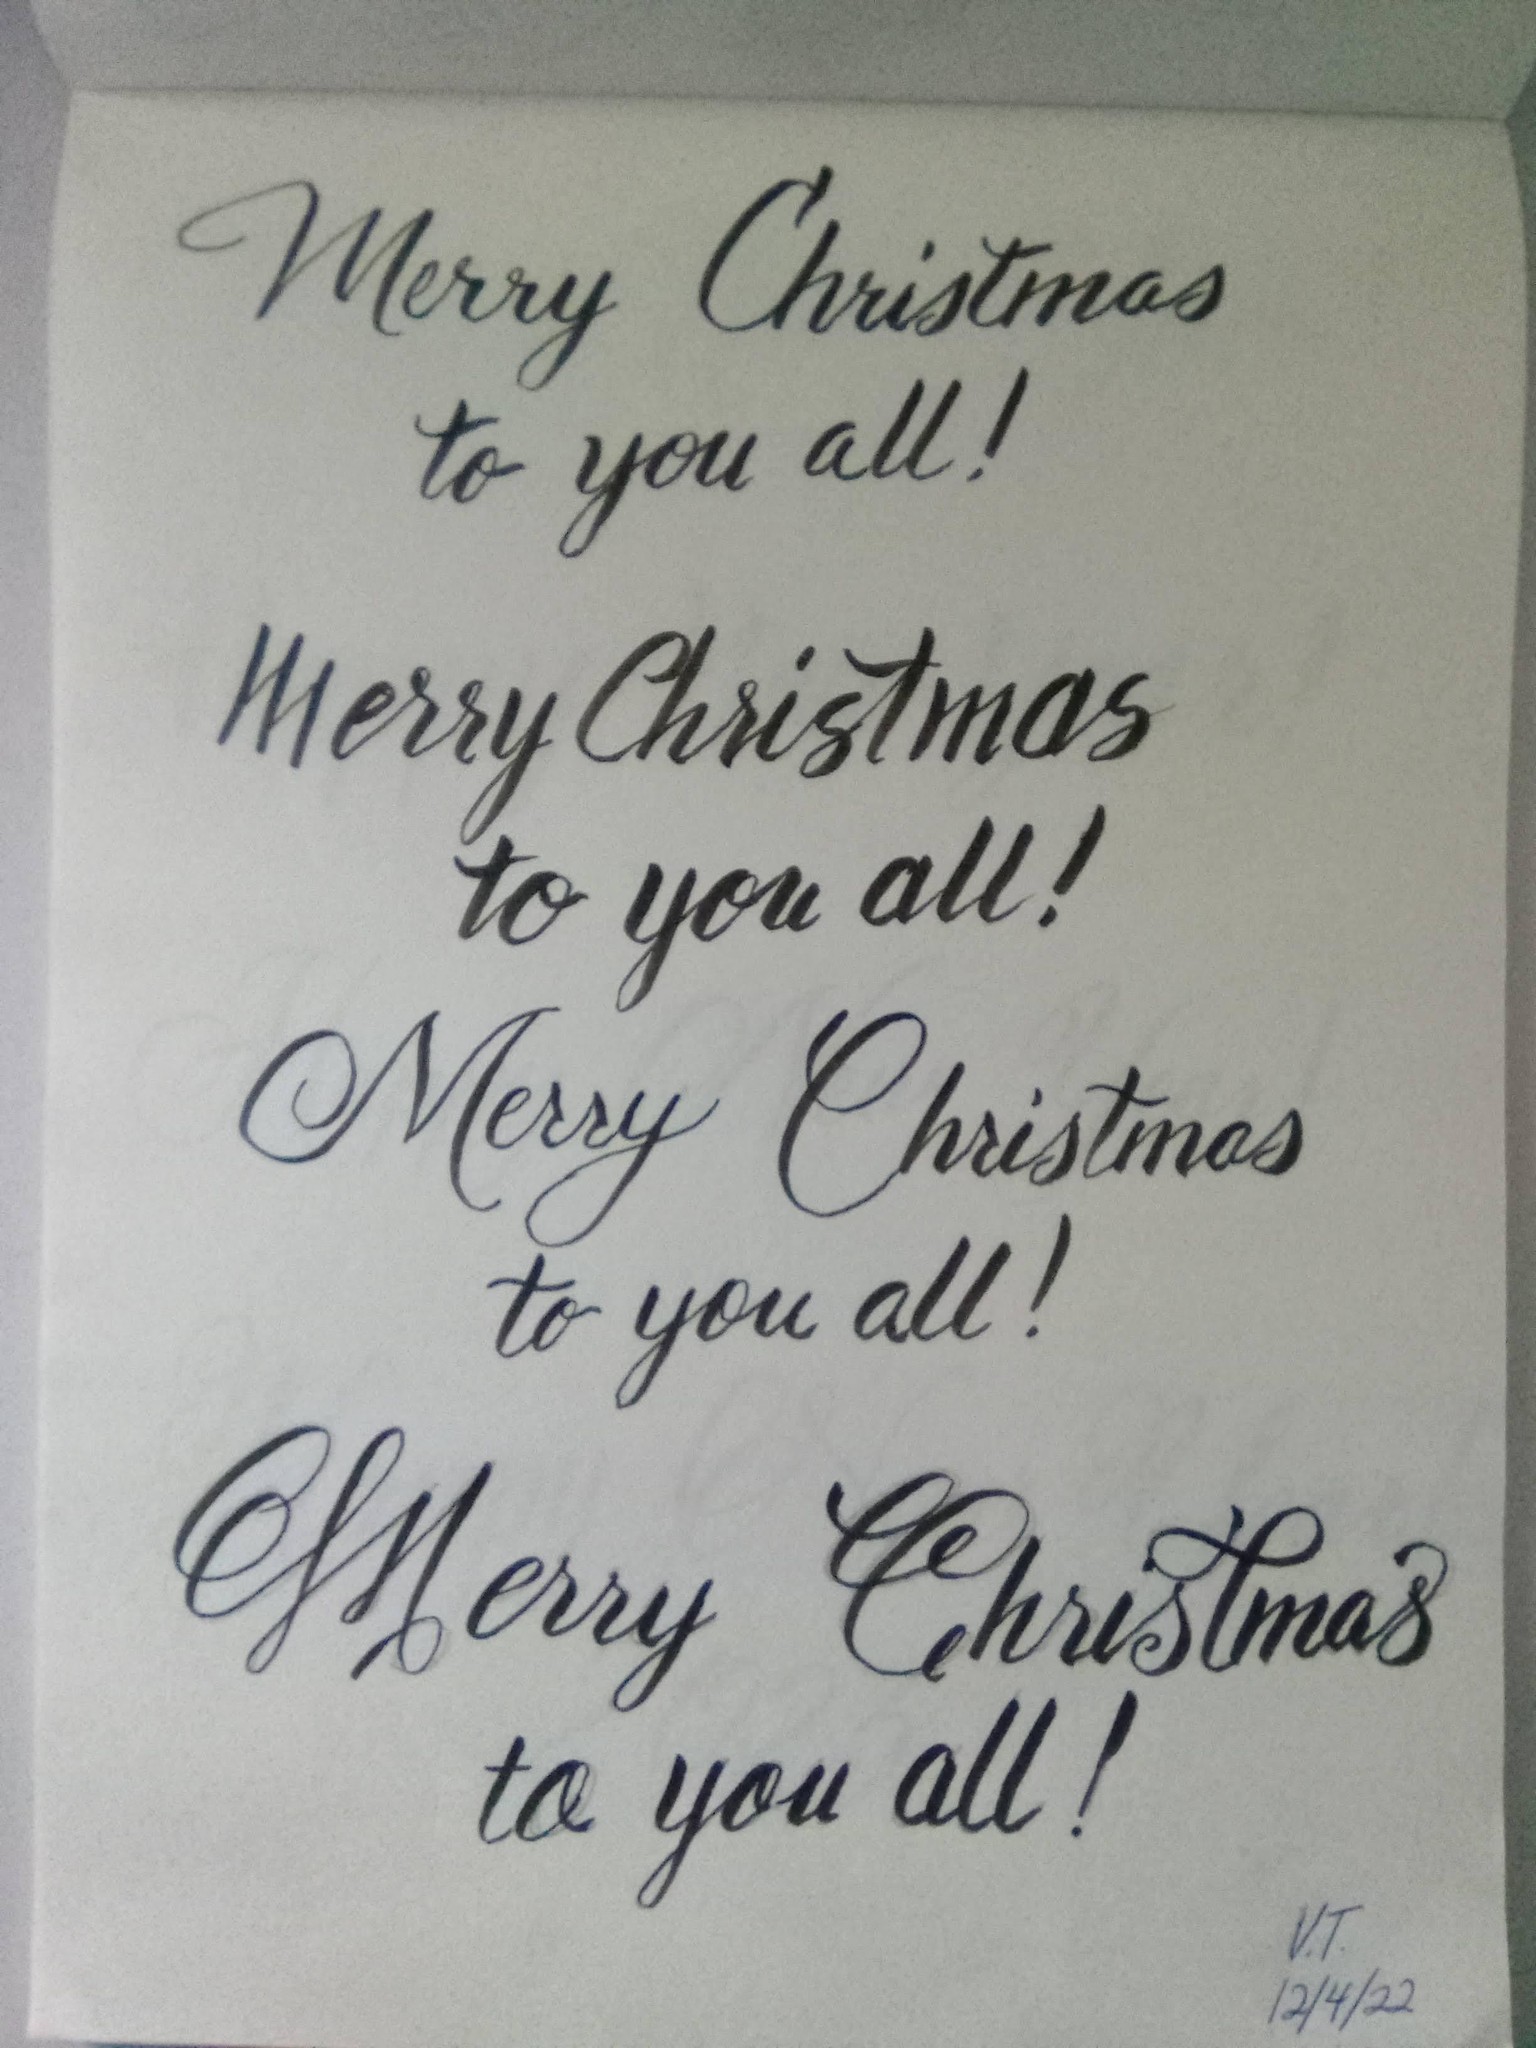 Merry Christmas
to you all!
Merry Christmas
to you all!
Merry Christmas
to you all!
Merry Christmas
to you all!
V.T.
12/4/22